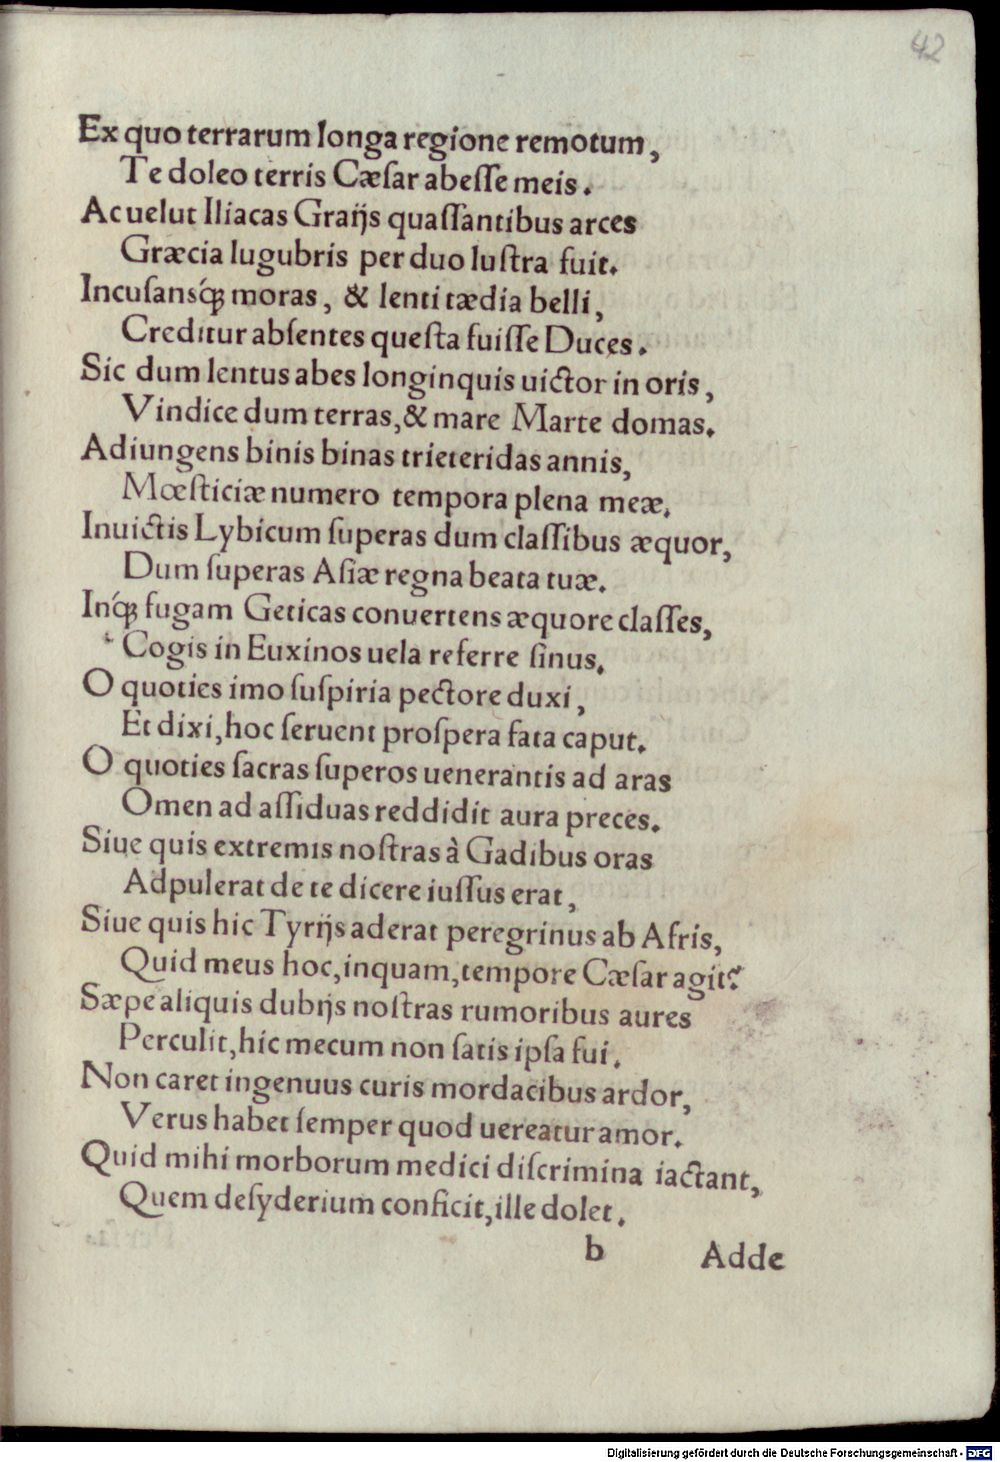 42
Ex quo terrarum longa regione remotum,
Te doleo terris Cæſar abeſſe meis.
Ac uelut Iliacas Graijs quaſſantibus arces
Græcia lugubris per duo luſtra fuit.
Incuſansq́; moras, & lenti tædia belli,
Creditur abſentes queſta fuiſſe Duces.
Sic dum lentus abes longinquis uictor in oris,
Vindice dum terras, & mare Marte domas.
Adiungens binis binas trieteridas annis,
Mœſticiæ numero tempora plena meæ.
Inuictis Lybicum ſuperas dum claſſibus æquor,
Dum ſuperas Aſiæ regna beata tuæ.
Inq́; fugam Geticas conuertens æquore claſſes,
Cogis in Euxinos uela referre ſinus.
O quoties imo ſuſpiria pectore duxi,
Et dixi, hoc ſeruent proſpera fata caput.
O quoties ſacras ſuperos uenerantis ad aras
Omen ad aſſiduas reddidit aura preces.
Siue quis extremis noſtras à Gadibus oras
Adpulerat de te dicere iuſſus erat,
Siue quis hic Tyrijs aderat peregrinus ab Afris,
Quid meus hoc, inquam, tempore Cæſar agit?
Sæpe aliquis dubijs noſtras rumoribus aures
Perculit, hic mecum non ſatis ipſa fui.
Non caret ingenuus curis mordacibus ardor,
Verus habet ſemper quod uereatur amor.
Quid mihi morborum medici diſcrimina iactant,
Quem deſyderium conficit, ille dolet.
b Adde
Digitalisierung gefördert durch die Deutsche Forschungsgemeinschaft - DFG